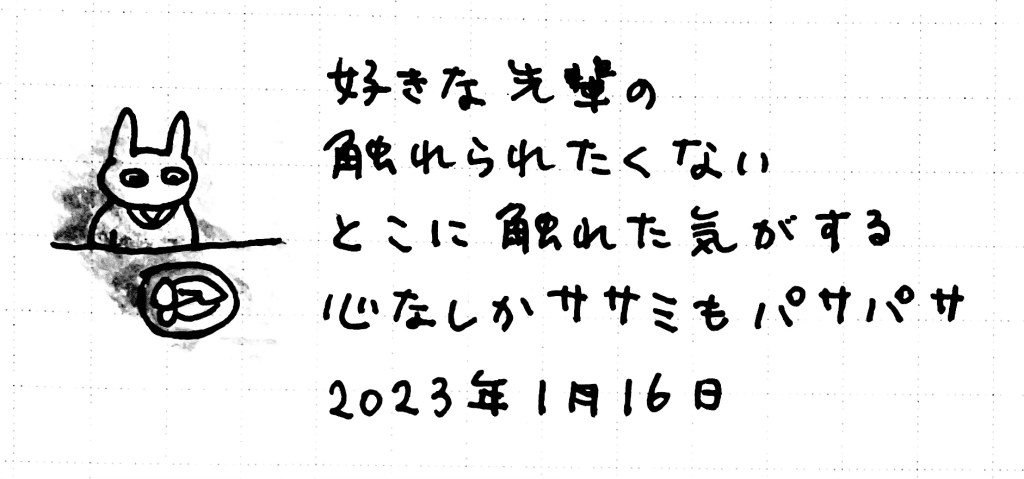 好きな先輩の
触れられたくない
とこに触れた気がする
心なしかササミもパサパサ
2023年1月16日